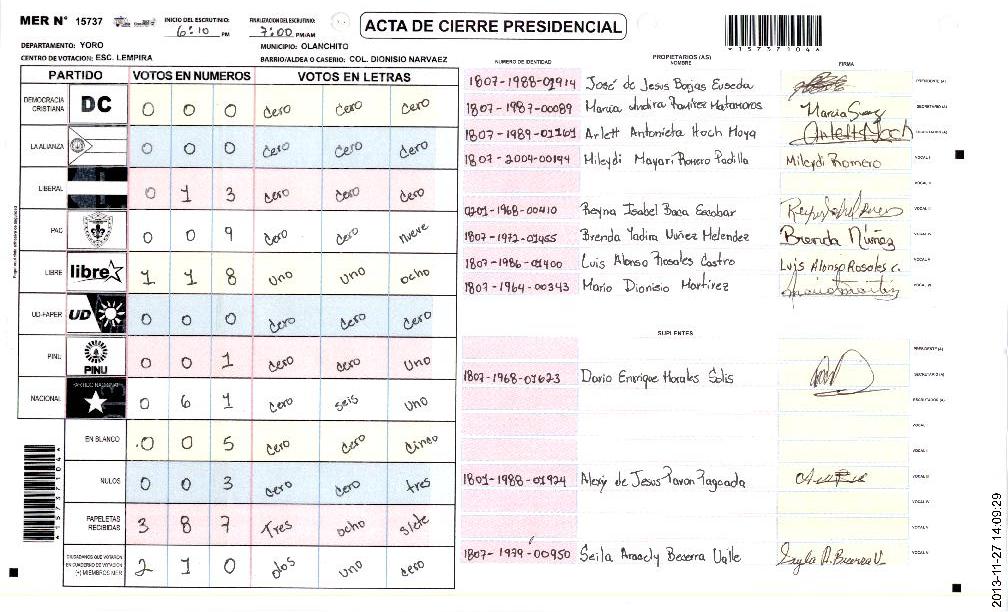 MER N° 15737
INICIO DEL ESCRUTINIO: 6:10 PM
FINALIZACION DEL ESCRUTINIO: 7:00 PM/AM
ACTA DE CIERRE PRESIDENCIAL
*1573710448*
DEPARTAMENTO: YORO
MUNICIPIO: OLANCHITO
CENTRO DE VOTACION: ESC. LEMPIRA
BARRIO/ALDEA O CASERIO: COL. DIONISIO NARVAEZ
PARTIDO VOTOS EN NUMEROS VOTOS EN LETRAS
DEMOCRACIA CRISTIANA DC 0 0 0 Cero Cero Cero
LA ALIANZA 0 0 0 Cero Cero Cero
LIBERAL 0 1 3 Cero Cero Cero
PAC 0 0 9 Cero Cero nueve
LIBRE libre 1 1 8 Uno Uno ocho
UD-FAPER UD 0 0 0 Cero Cero Cero
PINU PINU 0 0 1 Cero Cero Uno
NACIONAL PARTIDO NACIONAL 0 6 1 Cero seis Uno
EN BLANCO 0 0 5 Cero Cero Cinco
NULOS 0 0 3 Cero Cero tres
PAPELETAS RECIBIDAS 3 8 7 Tres ocho siete
CIUDADANOS QUE VOTARON EN CUADERNO DE VOTACION (+) MIEMBROS MER 2 1 0 dos uno cero
PROPIETARIOS (AS)
NUMERO DE IDENTIDAD NOMBRE FIRMA
1807-1988-01914 José de Jesus Borjas Euseda PRESIDENTE (A)
1807-1987-00089 Marcia Indira Ramirez Matamoros SECRETARIO (A)
1807-1989-01101 Arlett Antonieta Hoch Moya ESCRUTADOR (A)
1807-2004-00194 Mileydi Mayari Romero Padilla Mileydi Romero VOCAL I
VOCAL II
0201-1968-00410 Reyna Isabel Baca Escobar VOCAL III
1807-1972-01455 Brenda Yadira Nuñez Melendez Brenda Núñez VOCAL IV
1807-1986-01400 Luis Alonso Rosales Castro Luis Alonso Rosales C. VOCAL V
1807-1964-00343 Mario Dionisio Martirez
SUPLENTES
PRESIDENTE (A)
1807-1968-01623 Dario Enrrique Morales Solis SECRETARIO (A)
ESCRUTADOR (A)
VOCAL I
VOCAL II
1801-1988-01924 Alexy de Jesus VOCAL III
VOCAL IV
VOCAL V
1807-1979-00950 Seila Aracely Becerra Valle
2013-11-27 14:09:29